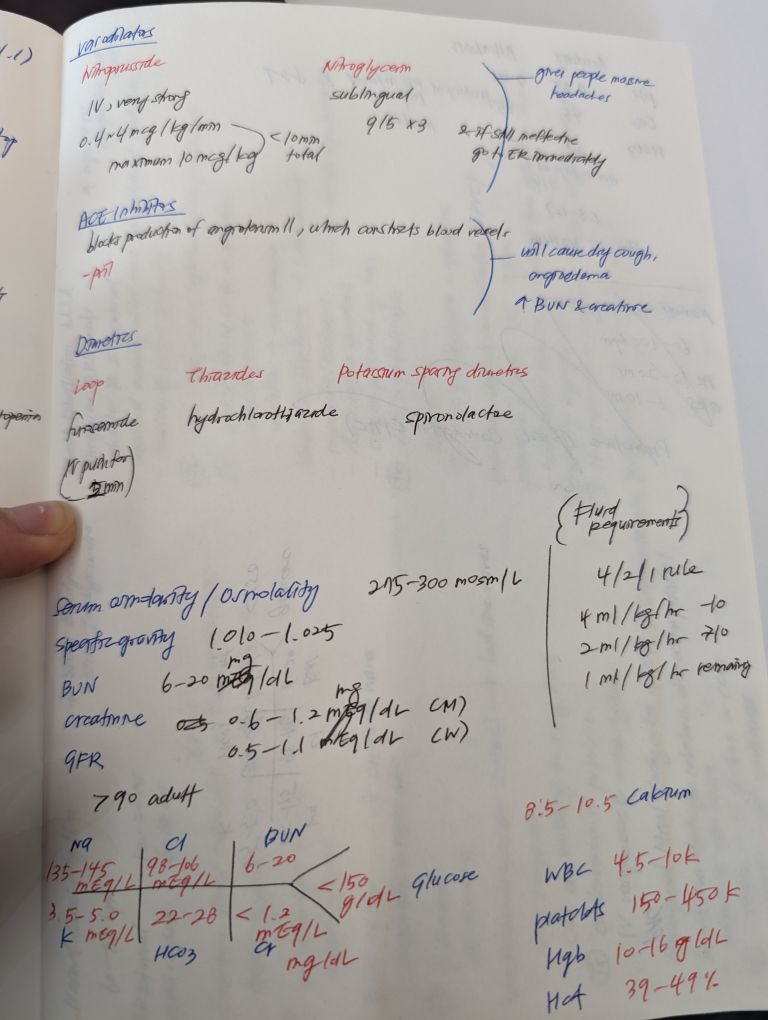 vasodilators
Nitroprusside
IV, very strong
0.4~4 mcg/kg/min
maximum 10 mcg/kg
<10 min total
Nitroglycerin
sublingual
q/5 x3
& if still ineffective
go to ER immediately
gives people massive
headaches
ACE Inhibitors
blocks production of angiotensin II, which constricts blood vessels
-pril
will cause dry cough,
angioedema
↑ BUN & creatinine
Diuretics
Loop
furosemide
(IV push for
min)
Thiazides
hydrochlorothiazide
Potassium sparing diuretics
spironolactone
{Fluid
Requirements}
4/2/1 rule
4 ml/kg/hr -10
2 ml/kg/hr 710
1 ml/kg/hr remaining
Serum osmolarity / Osmolality 275-300 mosm/L
Specific gravity 1.010-1.025
BUN 6-20 mg/dL
creatinine 0.6-1.2 mg/dL (M)
0.5-1.1 mEq/dL (W)
GFR
>90 adult
Na
135-145
mEq/L
Cl
98-106
mEq/L
BUN
6-20
<150
g/dL
Glucose
3.5-5.0
K mEq/L
22-28
HCO3
< 1.2
mEq/L
Cr
mg/dL
8.5-10.5 Calcium
WBC 4.5-10k
platelets 150-450k
Hgb 10-16 g/dL
Hct 39-49%